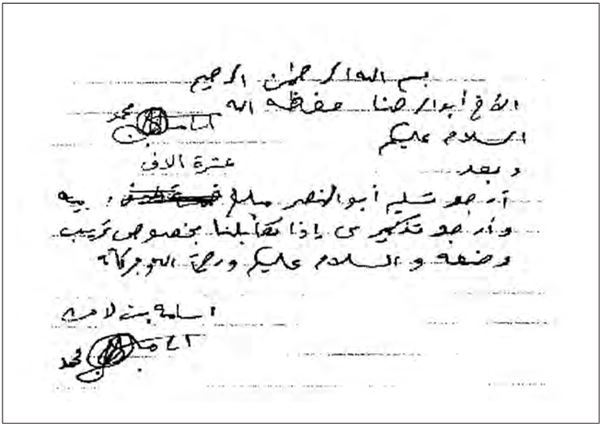 بسم الله الرحمن الرحيم
الأخ أبو الرضا حفظه الله
السلام عليكم
وبعد
عشرة الاف
أرجو تسليم أبو النصر مبلغ بيه
وأرجو تذكيري إذا تقابلنا بخصوص ترتيب
وضعه والسلام عليكم ورحمة الله وبركاته
اسامة بن لادن
محمد